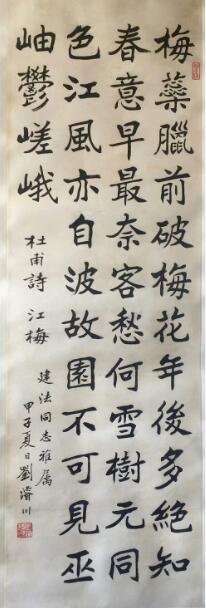 梅蘂臘前破梅花年後多絕知
春意早最奈客愁何雪樹元同
色江風亦自波故園不可見巫
岫鬱嵯峨
杜甫詩 江梅
建法同志雅属
甲子夏日劉濬川